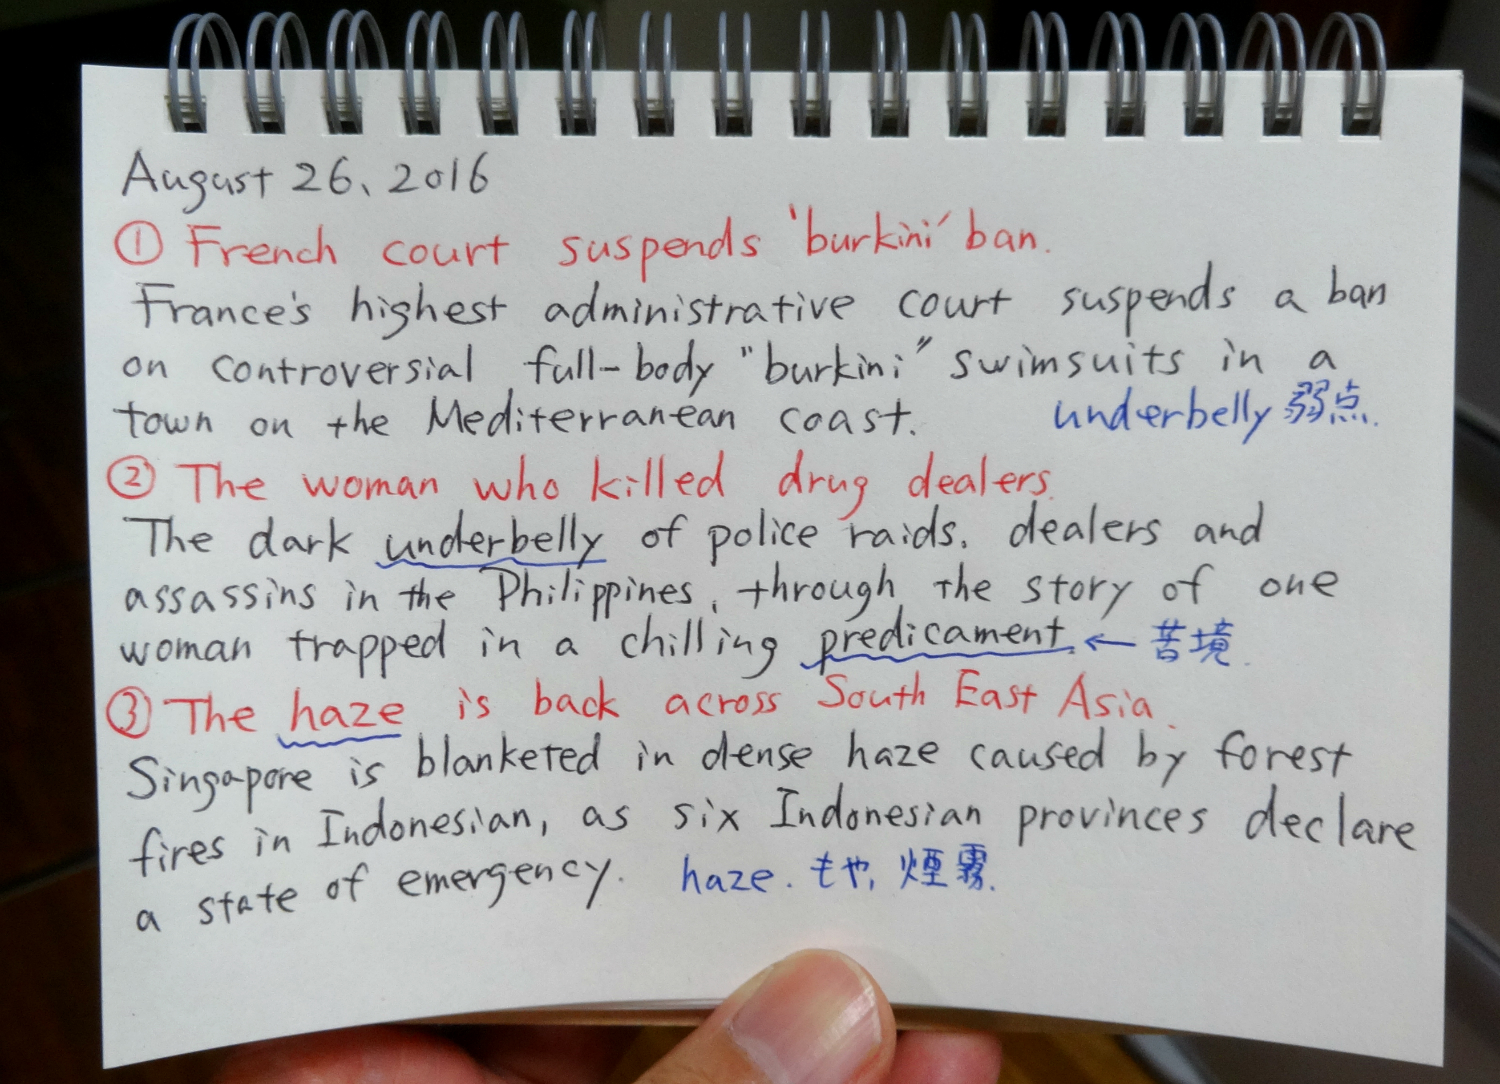 August 26, 2016
① French court suspends 'burkini' ban.
France's highest administrative court suspends a ban
on controversial full-body "burkini" swimsuits in a
town on the Mediterranean coast. underbelly 弱点.
② The woman who killed drug dealers.
The dark underbelly of police raids, dealers and
assassins in the Philippines, through the story of one
woman trapped in a chilling predicament. ← 苦境.
③ The haze is back across South East Asia.
Singapore is blanketed in dense haze caused by forest
fires in Indonesian, as six Indonesian provinces declare
a state of emergency. haze. もや, 煙霧.